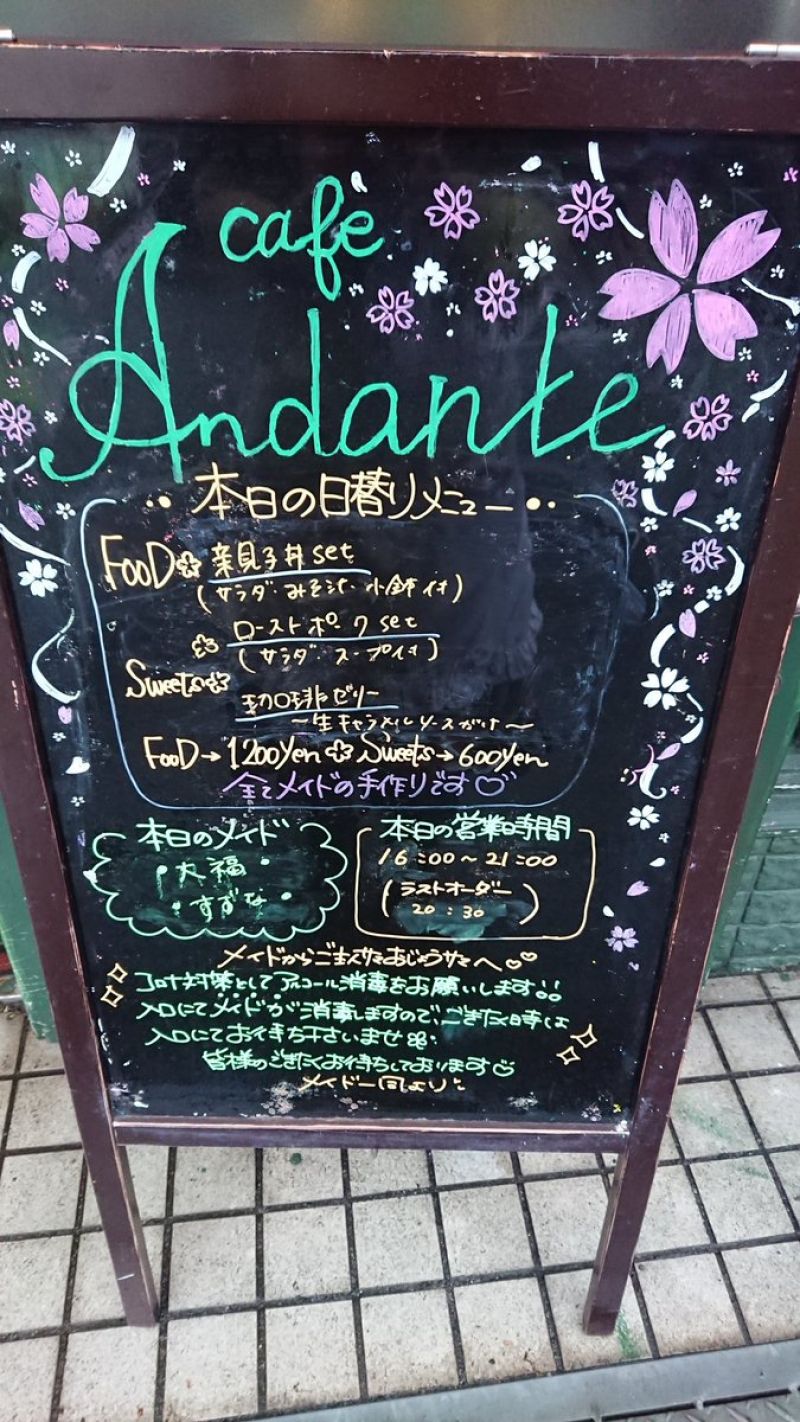 cafe
Andante
本日の日替りメニュー
FOOD 親見子丼set
(サラダ・みそ汁・小鉢付)
ローストポークset
(サラダ・スープ付)
Sweets
珈琲ゼリー
〜生キャラメルソースがけ〜
FOOD→1200yen Sweets→600yen
全てメイドの手作りです♡
本日のメイド
大福
すずな
本日の営業時間
16:00〜21:00
(ラストオーダー
20:30)
メイドからご主人サマおじょうサマへ♡♡
コロナ対策としてアルコール消毒をお願いします!!
入口にてメイドが消毒しますので、ごきたく時は
入口にてお待ち下さいませ
皆様のごきたくお待ちしております♡
メイド一同より